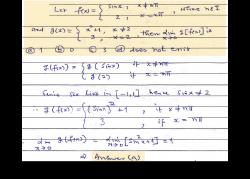 Let f(x) = { sinx, x ≠ nπ
2, x = nπ , where n∈I
and g(x) = { x²+1, x ≠ 2
3, x = 2 , then lim x→0 g[f(x)] is
a) 1 b) 0 c) 3 d) does not exist
g(f(x)) = { g(sinx) if x ≠ nπ
g(2) if x = nπ
Sinx lies in [-1,1] hence sinx ≠ 2
∴ g(f(x)) = { (sinx)²+1 , if x ≠ nπ
3 , if x = nπ
lim x→0 g(f(x)) = lim x→0 [sin²x+1] = 1
Answer (a)